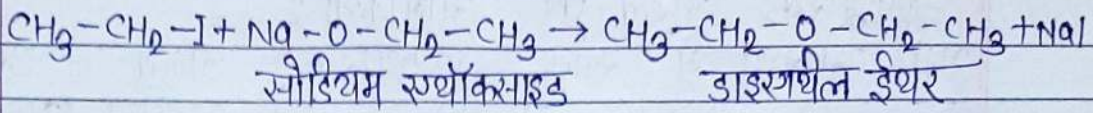 CH₃-CH₂-I + Na-O-CH₂-CH₃ → CH₃-CH₂-O-CH₂-CH₃ + NaI
सोडियम एथॉक्साइड डाइएथील ईथर